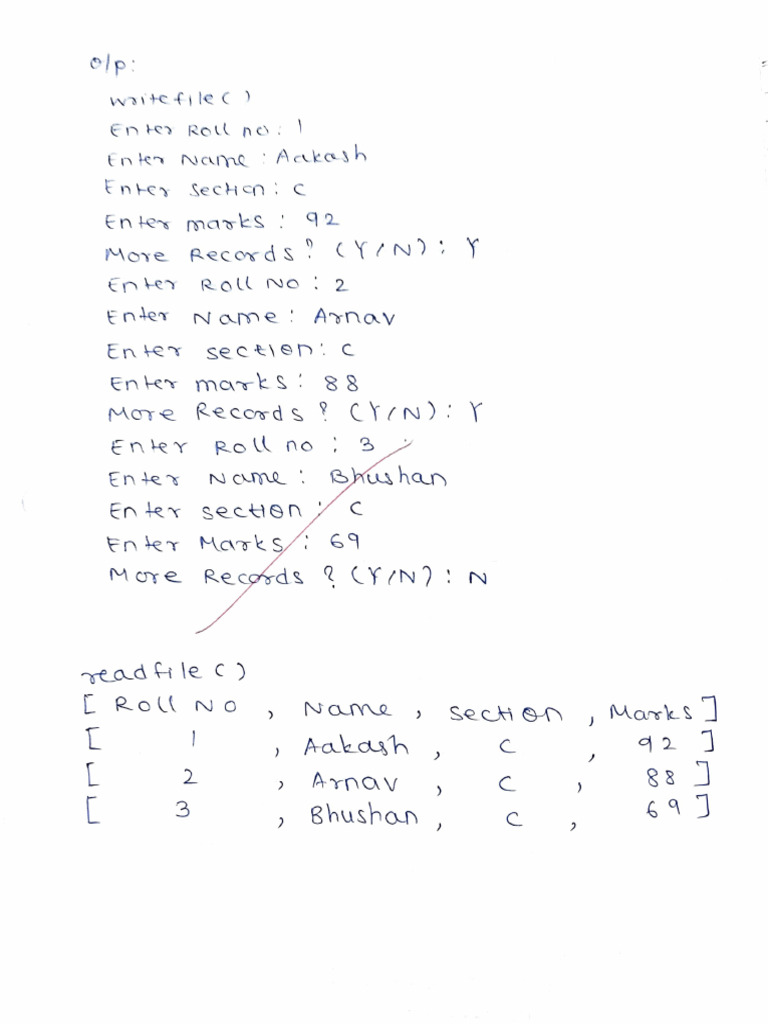 o/p:
writefile()
Enter Roll no: 1
Enter Name : Aakash
Enter section : C
Enter marks : 92
More Records? (Y/N) : Y
Enter Roll No : 2
Enter Name : Arnav
Enter section: C
Enter marks: 88
More Records? (Y/N) : Y
Enter Roll no : 3
Enter Name : Bhushan
Enter section : C
Enter Marks : 69
More Records ? (Y/N) : N
readfile()
[ Roll NO , Name , section , Marks ]
[ 1 , Aakash , C , 92 ]
[ 2 , Arnav , C , 88 ]
[ 3 , Bhushan , C , 69 ]